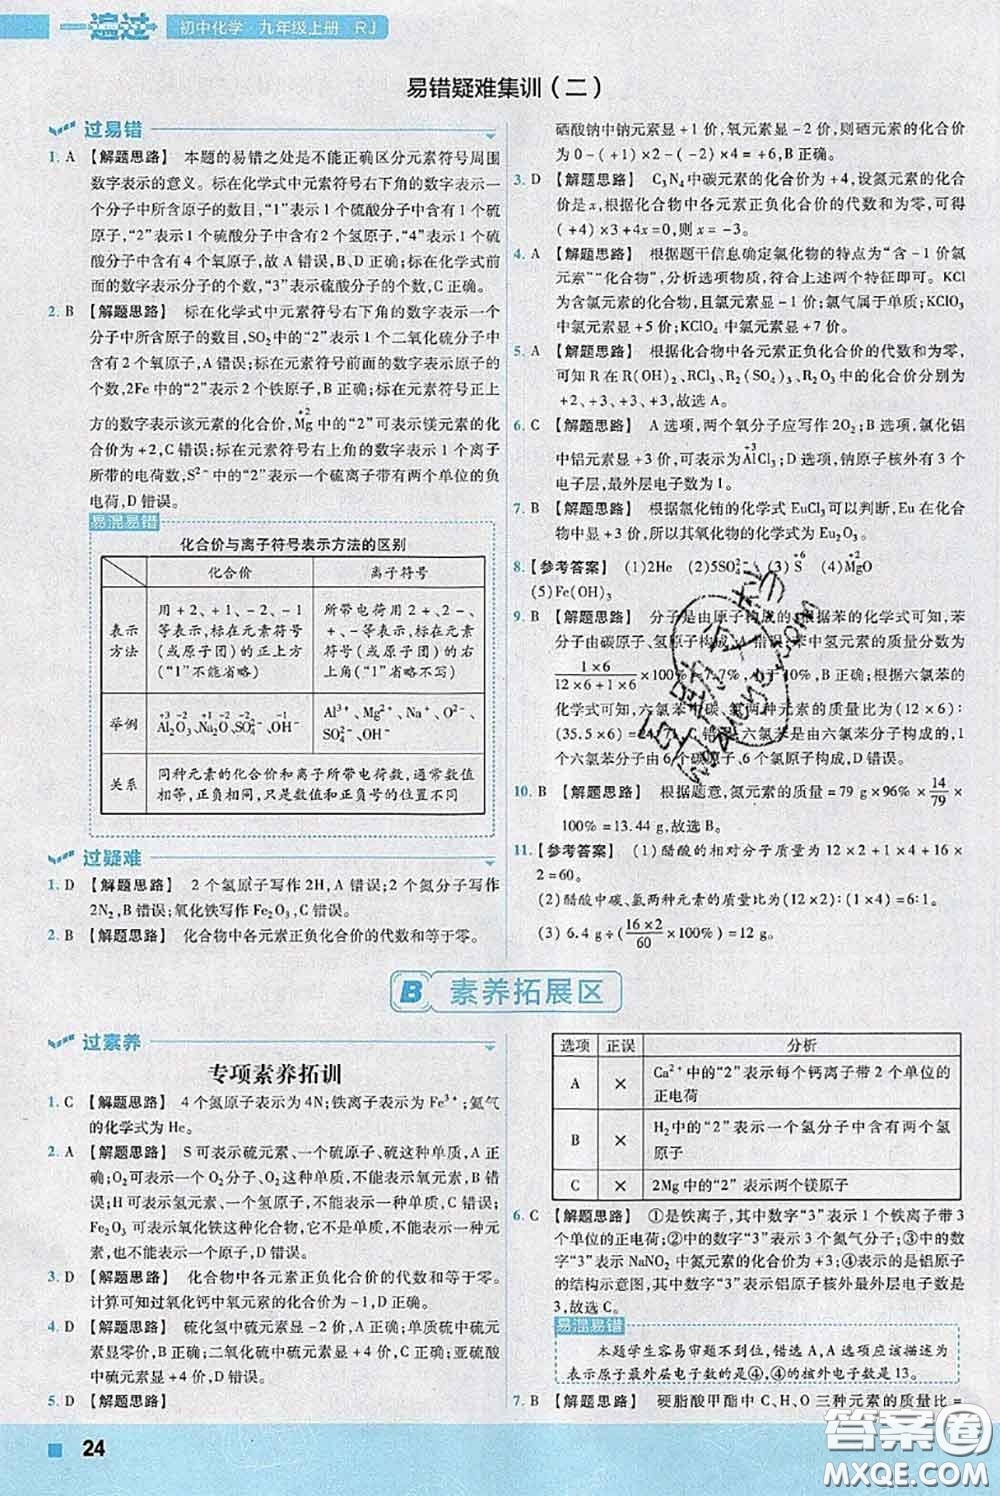 一遍过 初中化学·九年级上册 RJ
易错疑难集训（二）
过易错
1. A 【解题思路】 本题的易错之处是不能正确区分元素符号周围
数字表示的意义。标在化学式中元素符号右下角的数字表示一
个分子中所含原子的数目，“1”表示1个硫酸分子中含有1个硫
原子，“2”表示1个硫酸分子中含有2个氢原子，“4”表示1个
硫酸分子中含有4个氧原子，故A错误，B、D正确；标在化学式前
面的数字表示分子的个数，“3”表示硫酸分子的个数，C正确。
2. B 【解题思路】 标在化学式中元素符号右下角的数字表示一个
分子中所含原子的数目，SO₂中的“2”表示1个二氧化硫分子中
含有2个氧原子，A错误；标在元素符号前面的数字表示原子的
个数，2Fe中的“2”表示2个铁原子，B正确；标在元素符号正上
方的数字表示该元素的化合价，+2Mg中的“2”可表示镁元素的化
合价为+2，C错误；标在元素符号右上角的数字表示1个离子
所带的电荷数，S²⁻中的“2”表示一个硫离子带有两个单位的负
电荷，D错误。
易混易错
化合价与离子符号表示方法的区别
化合价 离子符号
表示方法
用+2、+1、-2、-1等表示，标在元素符号（或原子团）的正上方（“1”不能省略）
所带电荷用2+、2-、+、-等表示，标在元素符号（或原子团）的右上角（“1”省略不写）
举例
+3 -2 +1 -2 -2 -1
Al₂O₃、Na₂O、SO₄、OH
Al³⁺、Mg²⁺、Na⁺、O²⁻、SO₄²⁻、OH⁻
关系 同种元素的化合价和离子所带电荷数，通常数值
相等，正负相同，只是数值和正负号的位置不同
过疑难
1. D 【解题思路】 2个氢原子写作2H，A错误；2个氮分子写作
2N₂，B错误；氧化铁写作Fe₂O₃，C错误。
2. B 【解题思路】 化合物中各元素正负化合价的代数和等于零。
硒酸钠中钠元素显+1价，氧元素显-2价，则硒元素的化合价
为0-(+1)×2-(-2)×4=+6，B正确。
3. D 【解题思路】 C₃N₄中碳元素的化合价为+4，设氮元素的化合
价是x，根据化合物中各元素正负化合价的代数和为零，可得
(+4)×3+4x=0，则x=-3。
4. A 【解题思路】 根据题干信息确定氯化物的特点为“含-1价氯
元素”“化合物”，分析选项物质，符合上述两个特征即可。KCl
为含氯元素的化合物，且氯元素显-1价；氯气属于单质；KClO₃
中氯元素显+5价；KClO₄中氯元素显+7价。
5. A 【解题思路】 根据化合物中各元素正负化合价的代数和为零，
可知R在R(OH)₂、RCl₃、R₂(SO₄)₃、R₂O₃中的化合价分别为
+2、+3、+3、+3，故选A。
6. C 【解题思路】 A选项，两个氧分子应写作2O₂；B选项，氯化铝
中铝元素显+3价，表示为+3AlCl₃；D选项，钠原子核外有3个
电子层，最外层电子数为1。
7. B 【解题思路】 根据氯化铕的化学式EuCl₃可以判断，Eu在化合
物中显+3价，所以其氧化物的化学式为Eu₂O₃。
8. 【参考答案】 (1)2He (2)5SO₄²⁻ (3)+6S (4)+2MgO
(5)Fe(OH)₃
9. B 【解题思路】 分子是由原子构成的，根据苯的化学式可知，苯
分子由碳原子、氢原子构成，A错误；苯中氢元素的质量分数为
1×6/(12×6+1×6)×100%≈7.7%，小于10%，B正确；根据六氯苯的
化学式可知，六氯苯中碳、氯两种元素的质量比为(12×6)：
(35.5×6)=24:71，C错误；六氯苯是由六氯苯分子构成的，1
个六氯苯分子由6个碳原子、6个氯原子构成，D错误。
10. B 【解题思路】 根据题意，氮元素的质量=79 g×96%×14/79×
100%=13.44 g，故选B。
11. 【参考答案】 (1)醋酸的相对分子质量为12×2+1×4+16×
2=60。
(2)醋酸中碳、氢两种元素的质量比为(12×2)：(1×4)=6:1。
(3) 6.4 g÷(16×2/60×100%)=12 g。
B 素养拓展区
过素养
专项素养拓训
1. C 【解题思路】 4个氮原子表示为4N；铁离子表示为Fe³⁺；氦气
的化学式为He。
2. A 【解题思路】 S可表示硫元素、一个硫原子、硫这种单质，A正
确；O₂可表示一个O₂分子、O₂这种单质，不能表示氧元素，B错
误；H可表示氢元素、一个氢原子，不能表示一种单质，C错误；
Fe₂O₃可表示氧化铁这种化合物，它不是单质，不能表示一种元
素，也不能表示一个原子，D错误。
3. D 【解题思路】 化合物中各元素正负化合价的代数和等于零。
计算可知过氧化钙中氧元素的化合价为-1，D正确。
4. D 【解题思路】 硫化氢中硫元素显-2价，A正确；单质硫中硫元
素显0价，B正确；二氧化硫中硫元素显+4价，C正确；亚硫酸
中硫元素显+4价，D错误。
5. D 【解题思路】
选项 正误 分析
A × Ca²⁺中的“2”表示每个钙离子带2个单位的
正电荷
B × H₂中的“2”表示一个氢分子中含有两个氢
原子
C × 2Mg中的“2”表示两个镁原子
6. C 【解题思路】 ①是铁离子，其中数字“3”表示1个铁离子带3
个单位的正电荷；②中的数字“3”表示3个氮气分子；③中的数
字“3”表示NaNO₂中氮元素的化合价为+3；④表示的是铝原子
的结构示意图，其中数字“3”表示铝原子核外最外层电子数是
3，故选C。
易混易错
本题学生容易审题不到位，错选A，A选项应该描述为
表示原子最外层电子数的是④，④的核外电子数是13。
7. B 【解题思路】 硬脂酸甲酯中C、H、O三种元素的质量比=
24
答案圈
MXQE.COM